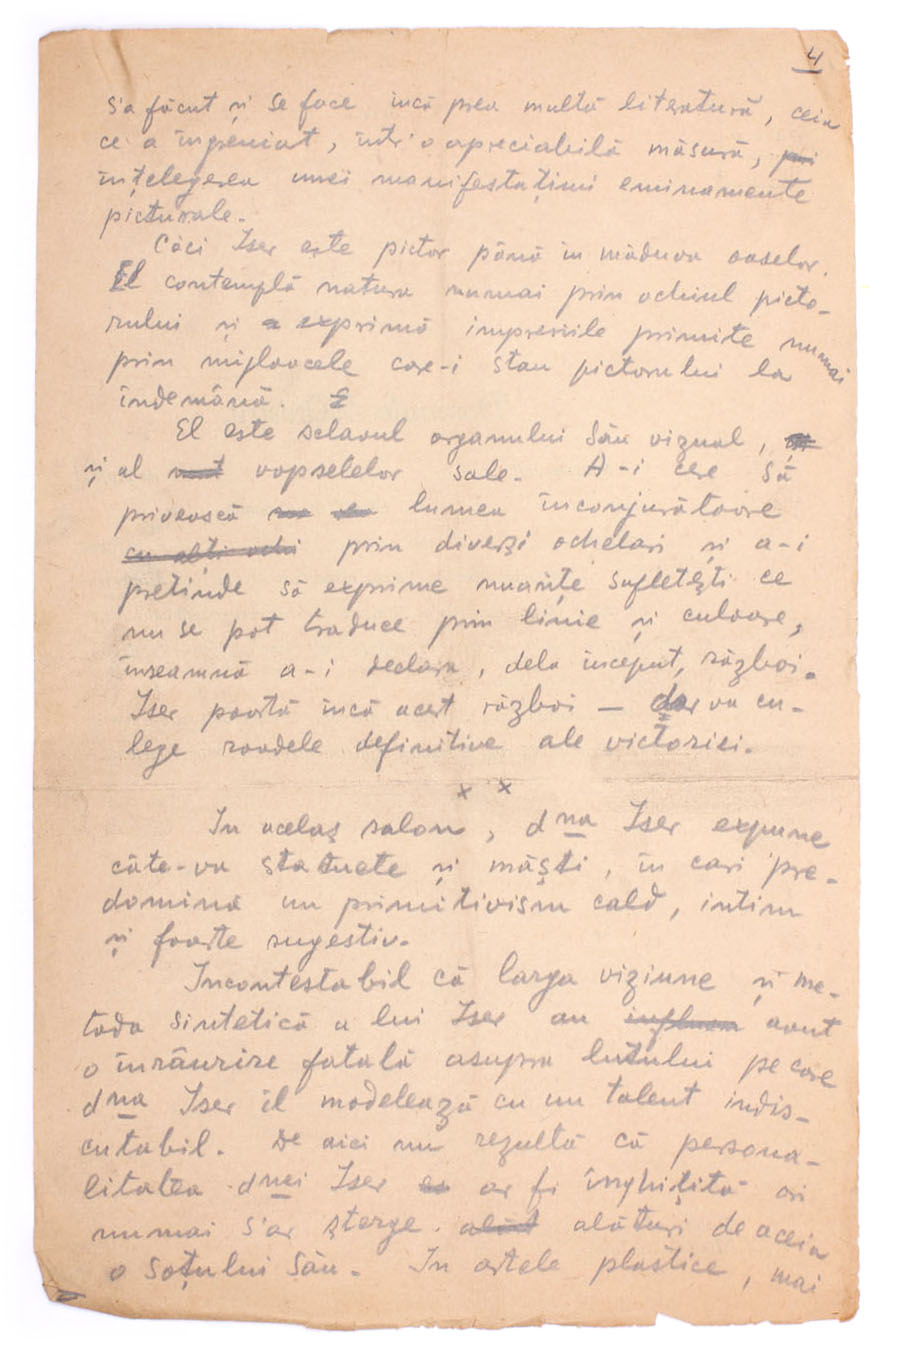 4
s'a făcut și se face încă prea multă literatură, ceia
ce a îngreuiat, într'o apreciabilă măsură,
înțelegerea unei manifestațiuni eminamente
picturale.
Căci Iser este pictor până în măduva oaselor.
El contemplă natura numai prin ochiul picto-
rului și exprimă impresiile primite numai
prin mijloacele care-i stau pictorului la
îndemână.
El este sclavul organului său vizual,
și al vopselelor sale. A-i cere să
privească lumea înconjurătoare
cu alți ochi prin diverși ochelari și a-i
pretinde să exprime nuanțe sufletești ce
nu se pot traduce prin linie și culoare,
înseamnă a-i declara, dela început, război.
Iser poartă încă acest război — dar va cu-
lege roadele definitive ale victoriei.
x x
In acelaș salon, dna Iser expune
câte-va statuete și măști, în cari pre-
domină un primitivism cald, intim
și foarte sugestiv.
Incontestabil că larga viziune și me-
toda sintetică a lui Iser au influen avut
o înrâurire fatală asupra lutului pe care
dna Iser îl modelează cu un talent indis-
cutabil. De aici nu rezultă că persona-
litatea dnei Iser ar fi înghițită ori
numai s'ar șterge alături de aceia
a soțului său. In artele plastice, mai